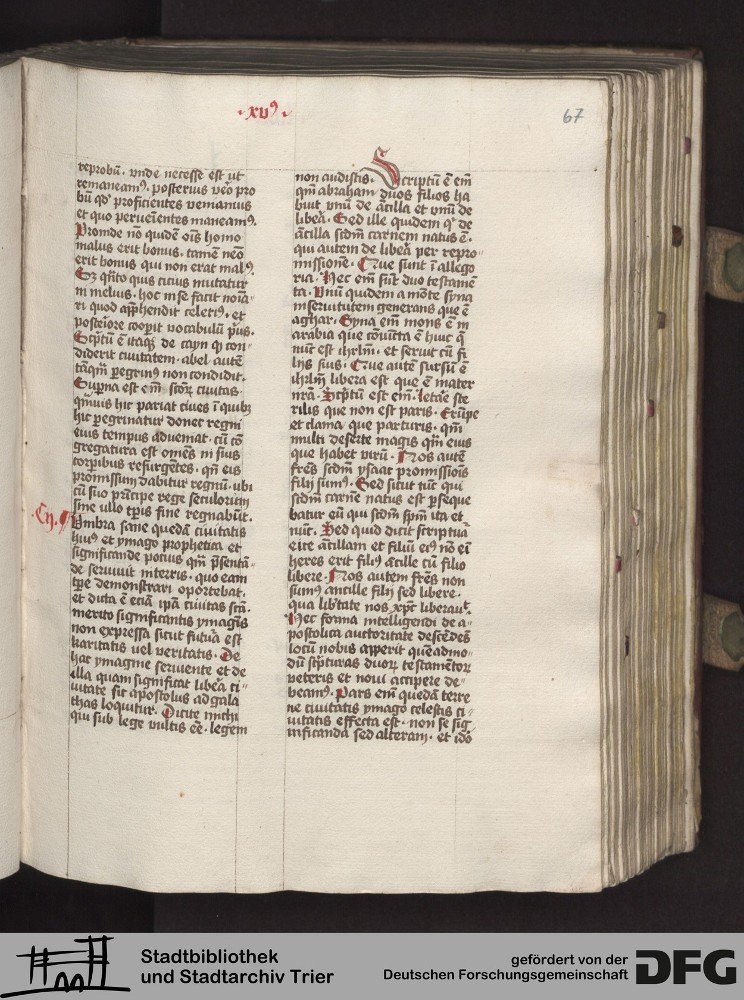 ·xvꝰ·
67
reprobū. vnde necesse est ut
remaneamꝰ. posterius ueo pro
bū qd' proficientes veniamus
et quo peruēientes maneamꝰ.
Proinde nō quidē oīs homo
malus erit bonus. tamē nēo
erit bonus qui non erat malꝰ.
Sz qn̄to quis citius mutatur
in melius. hoc in se facit noīa
ri quod apphendit celeriꝰ. et
posteriore cooperit vocabulū pꝰus.
Scptū ē itaqꝫ de cayn qꝫ con
diderit ciuitatem. abel autē
tāqm̄ pegrinꝰ non condidit.
Supna est em̄ sctoꝝ ciuitas
qm̄uis hic pariat ciues ī quibꝫ
hic pegrinatur donec regni
eius tempus adueniat. cū cō
gregatura est omēs in suis
corpibus resurgētes. qn̄ eis
promissum dabitur regnū. ubi
cū suo prīcipe rege seculorum
sine ullo tpis fine regnabūt.
Cıȷ. ¶
Vmbra sane quedā ciuitatis
huiꝰ et ymago prophetica et
significande potius qm̄ psentā
de seruiuit interris. quo eam
tpe demonstrari oportebat.
et dicta ē eciā ipā ciuitas scā.
merito significantis ymagīs
non expressa sicut futura est
karitatis vel veritatis. De
hac ymagine seruiente et de
illa quam significat libea ci
uitate sic apostolus ad gala
thas loquitur. Dicite michi
qui sub lege vultis eē. legem
non audistis. Scriptū ē em̄
qm̄ abraham duos filios ha
buit vnū de ācilla et vnū de
libea. Sed ille quidem qꝫ de
ācilla scdm̄ carnem natus ē.
qui autem de libea per repro
missionē. Que sunt ī allego
ria. Hec em̄ sūt duo testamē
ta. Vnū quidem a mōte syna
in seruitutem generans que ē
aghar. Syna em̄ mons ē in
arabia que cōiūcta ē huic q̄
nūc est ihrlm̄. et seruit cū fi
liis suis. Que autē sursū ē
ihrlm̄ libera est que ē mater
nrā. Scptū est em̄. letare ste
rilis que non est paris. Erūpe
et clama que parturis. qm̄
multi deserte magis qm̄ eius
que habet virū. Nos autē
frēs scdm̄ ysaac promissiōis
filij sumꝰ. Sed sicut tūc qui
scdm̄ carnē natus est pseque
batur eū qui scdm̄ spm̄ ita et
nūc. Sed quid dicit scriptura
eice ācillam et filiū eiꝰ nō eī
heres erit filiꝰ ācille cū filio
libere. Nos autem frēs non
sumꝰ ancille filij sed libere.
qua libtate nos xpc̄ liberauit.
Hec forma intelligendi de a
postolica auctoritate descēdēs
locū nobis apperit queadmo
dū scpturas duorꝫ testamētorꝫ
veteris et noui accipere de
beamꝰ. Pars em̄ quedā terre
ne ciuitatis ymago celestis ci
uitatis effecta est. non se sig
nificanda sed alteram. et ideo
Stadtbibliothek
und Stadtarchiv Trier
gefördert von der
Deutschen Forschungsgemeinschaft
DFG